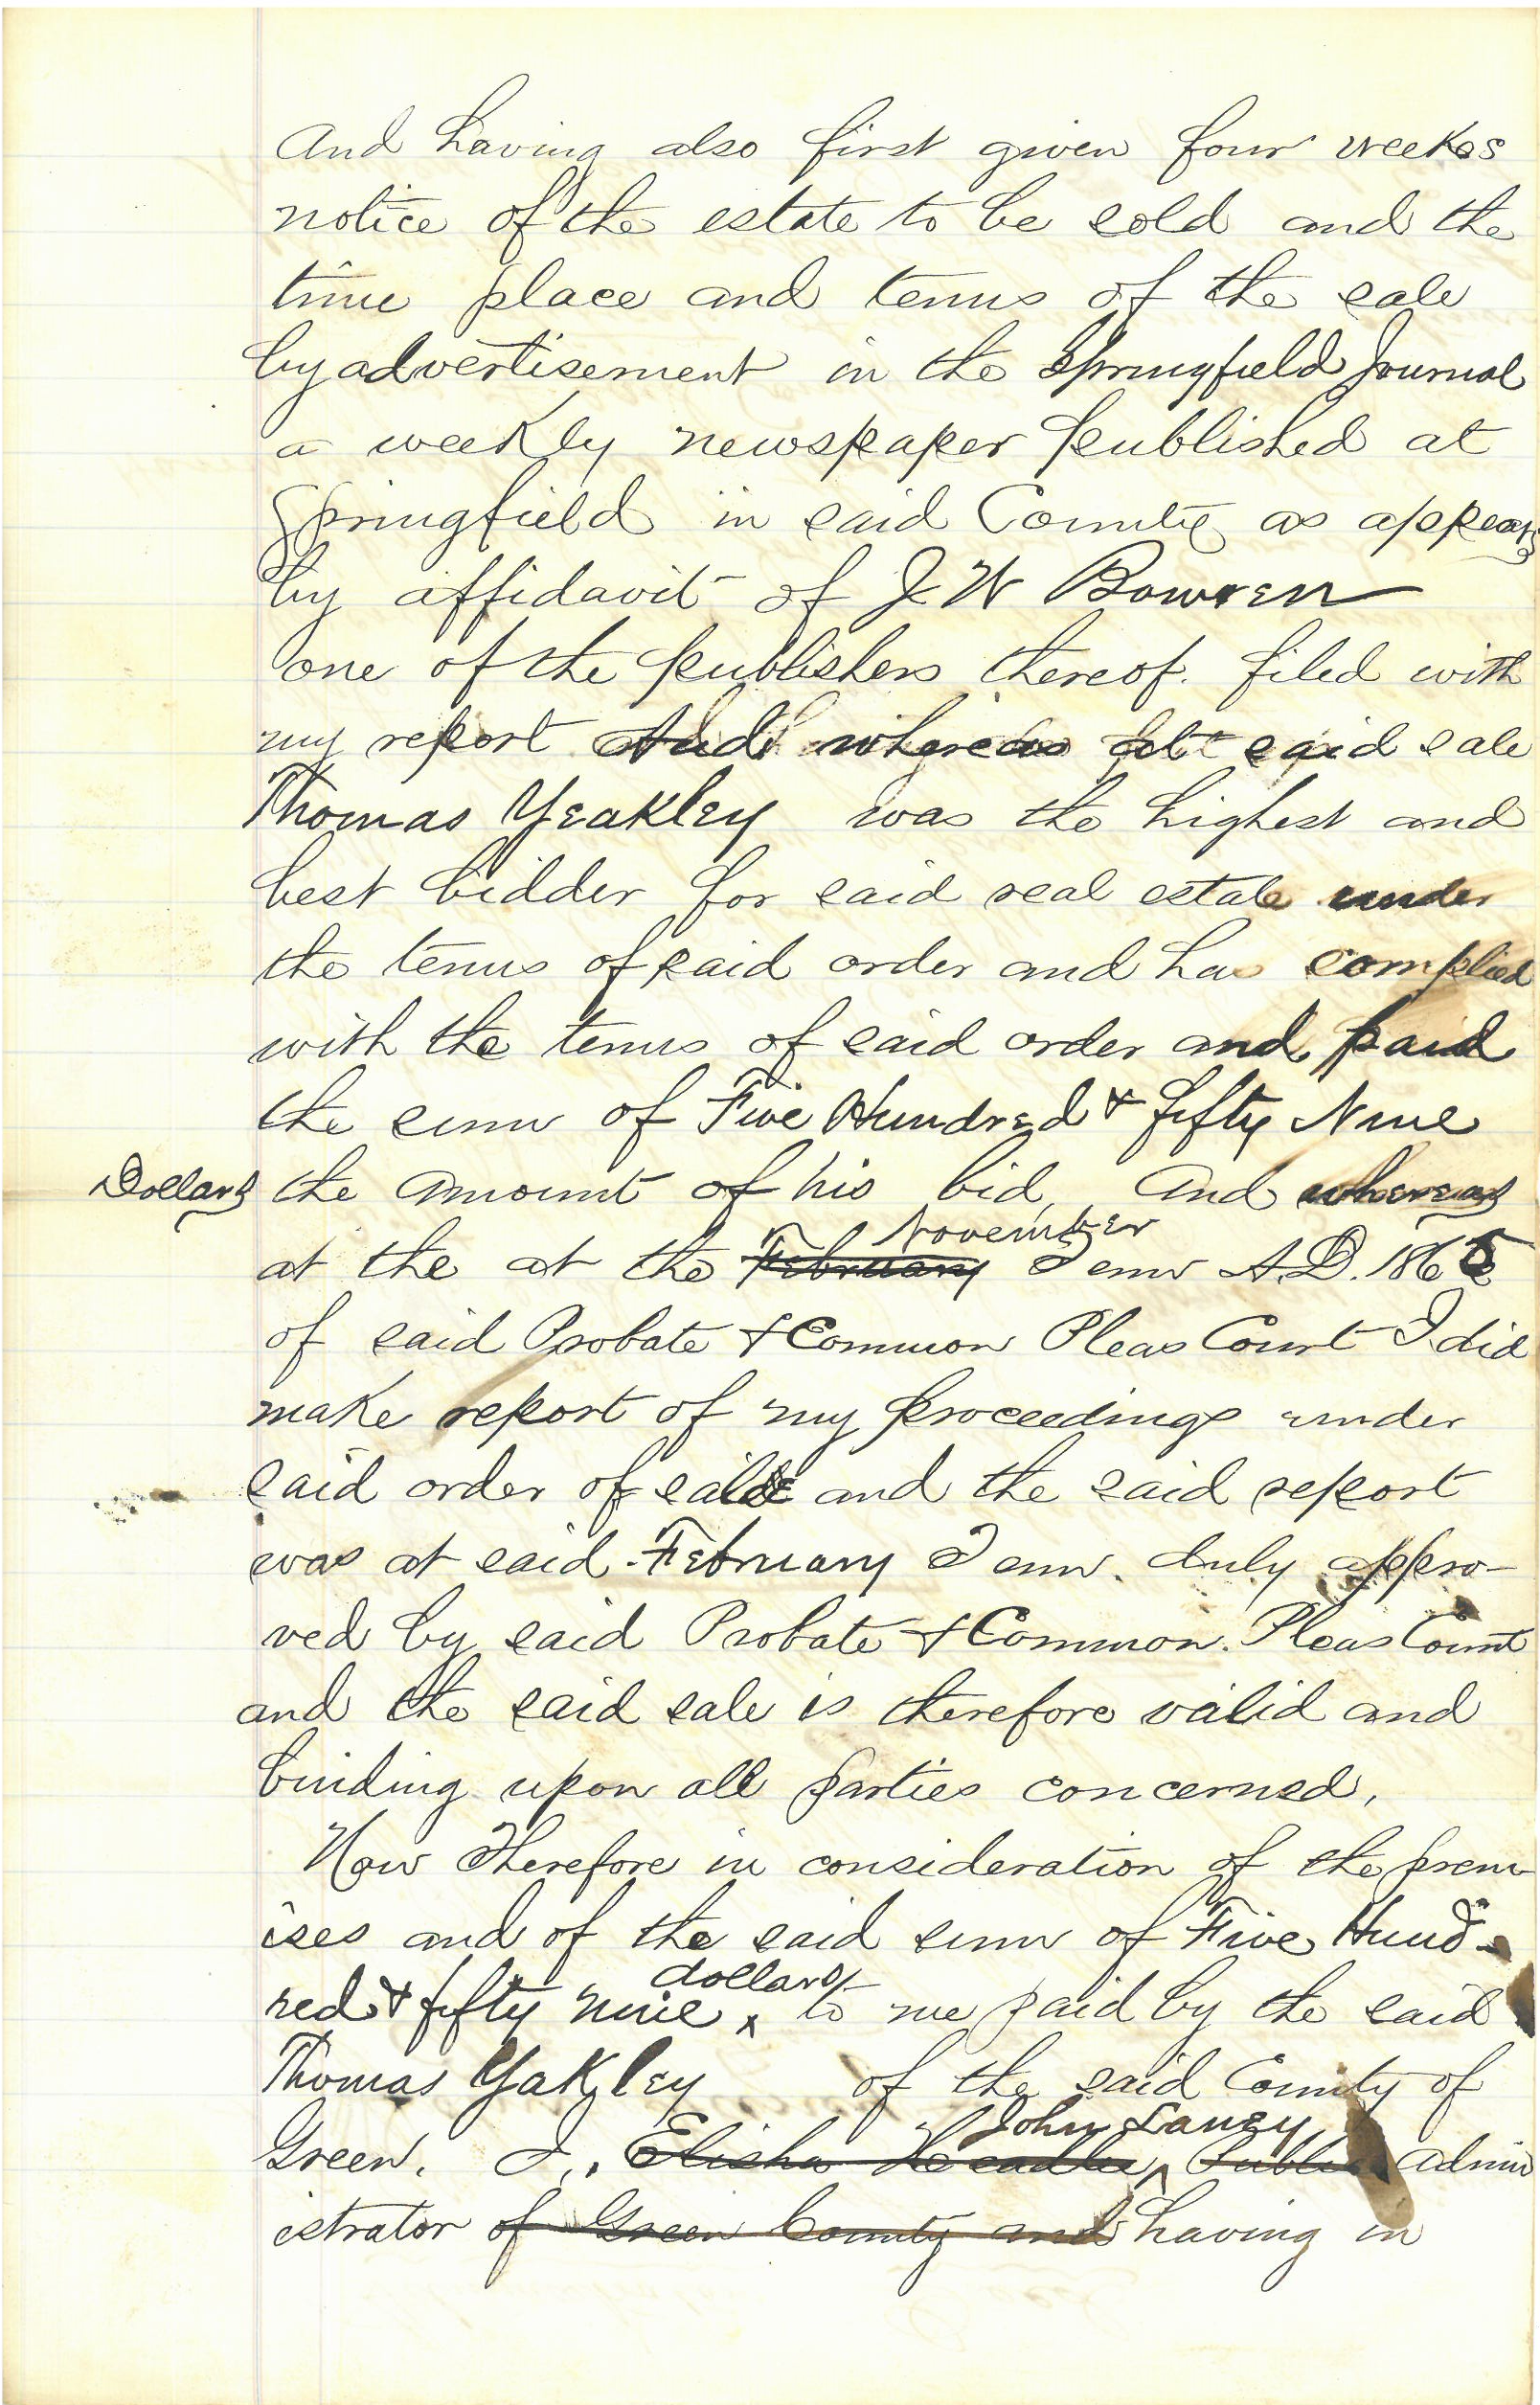 And having also first given four weekes
notice of the estate to be sold and the
time place and terms of the sale
by advertisement in the Springfield Journal
a weekly newspaper published at
Springfield in said County as appears
by affidavit of J W Bowren
one of the publishers thereof. filed with
my report And whereas at said sale
Thomas Yeakley was the highest and
best bidder for said real estate under
the terms of said order and has complied
with the terms of said order and paid
the sum of Five Hundred & fifty Nine
Dollars the amount of his bid, And whereas
November
at the at the February Term A.D. 1865
of said Probate & Common Pleas Court I did
make report of my proceedings under
said order of sale and the said report
was at said February Term. duly appro-
ved by said Probate & Common Pleas Court
and the said sale is therefore valid and
binding upon all parties concerned,
Now Therefore in consideration of the prem-
ises and of the said sum of Five Hund-
dollars
red & fifty nine x to me paid by the said
Thomas Yakley of the said County of
John Laney
Green. I, Elisha Headlee Public Admin
istrator of Green County and having in